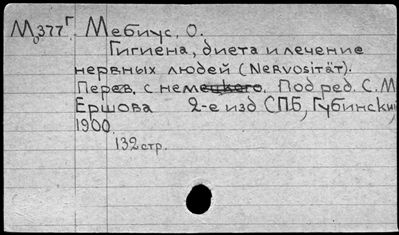 М377Г. Мебиус, О.
0
Гигиена, диета и лечение
нервных людей (Nervosität).
Перев. с немецкого. Под ред. С. М
Ершова 2-е изд СПБ, Губински
1900
132 стр.